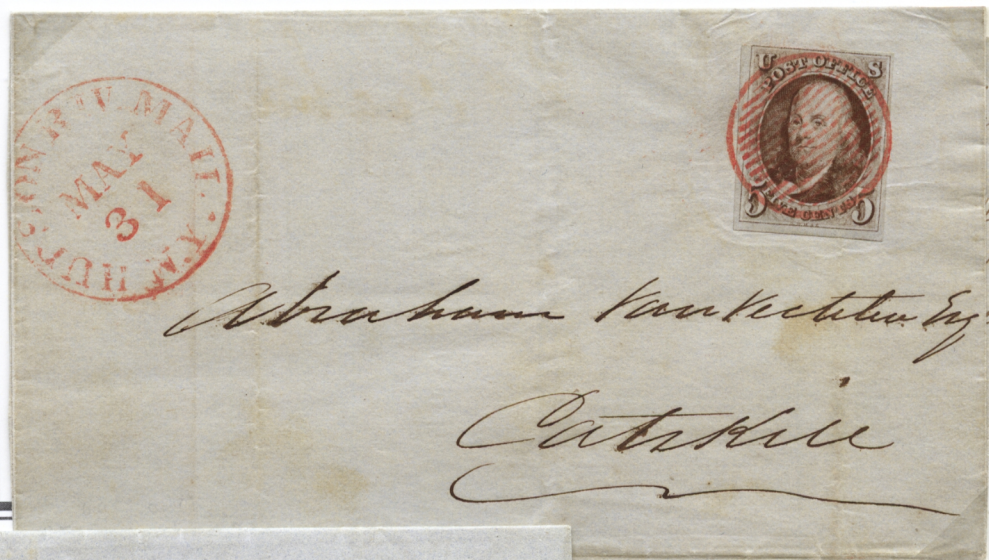 HUDSON RIV. MAIL N.Y.
MAY
31
U S
POST OFFICE
5 FIVE CENTS 5
Abraham Van Vechten Esq
Catskill